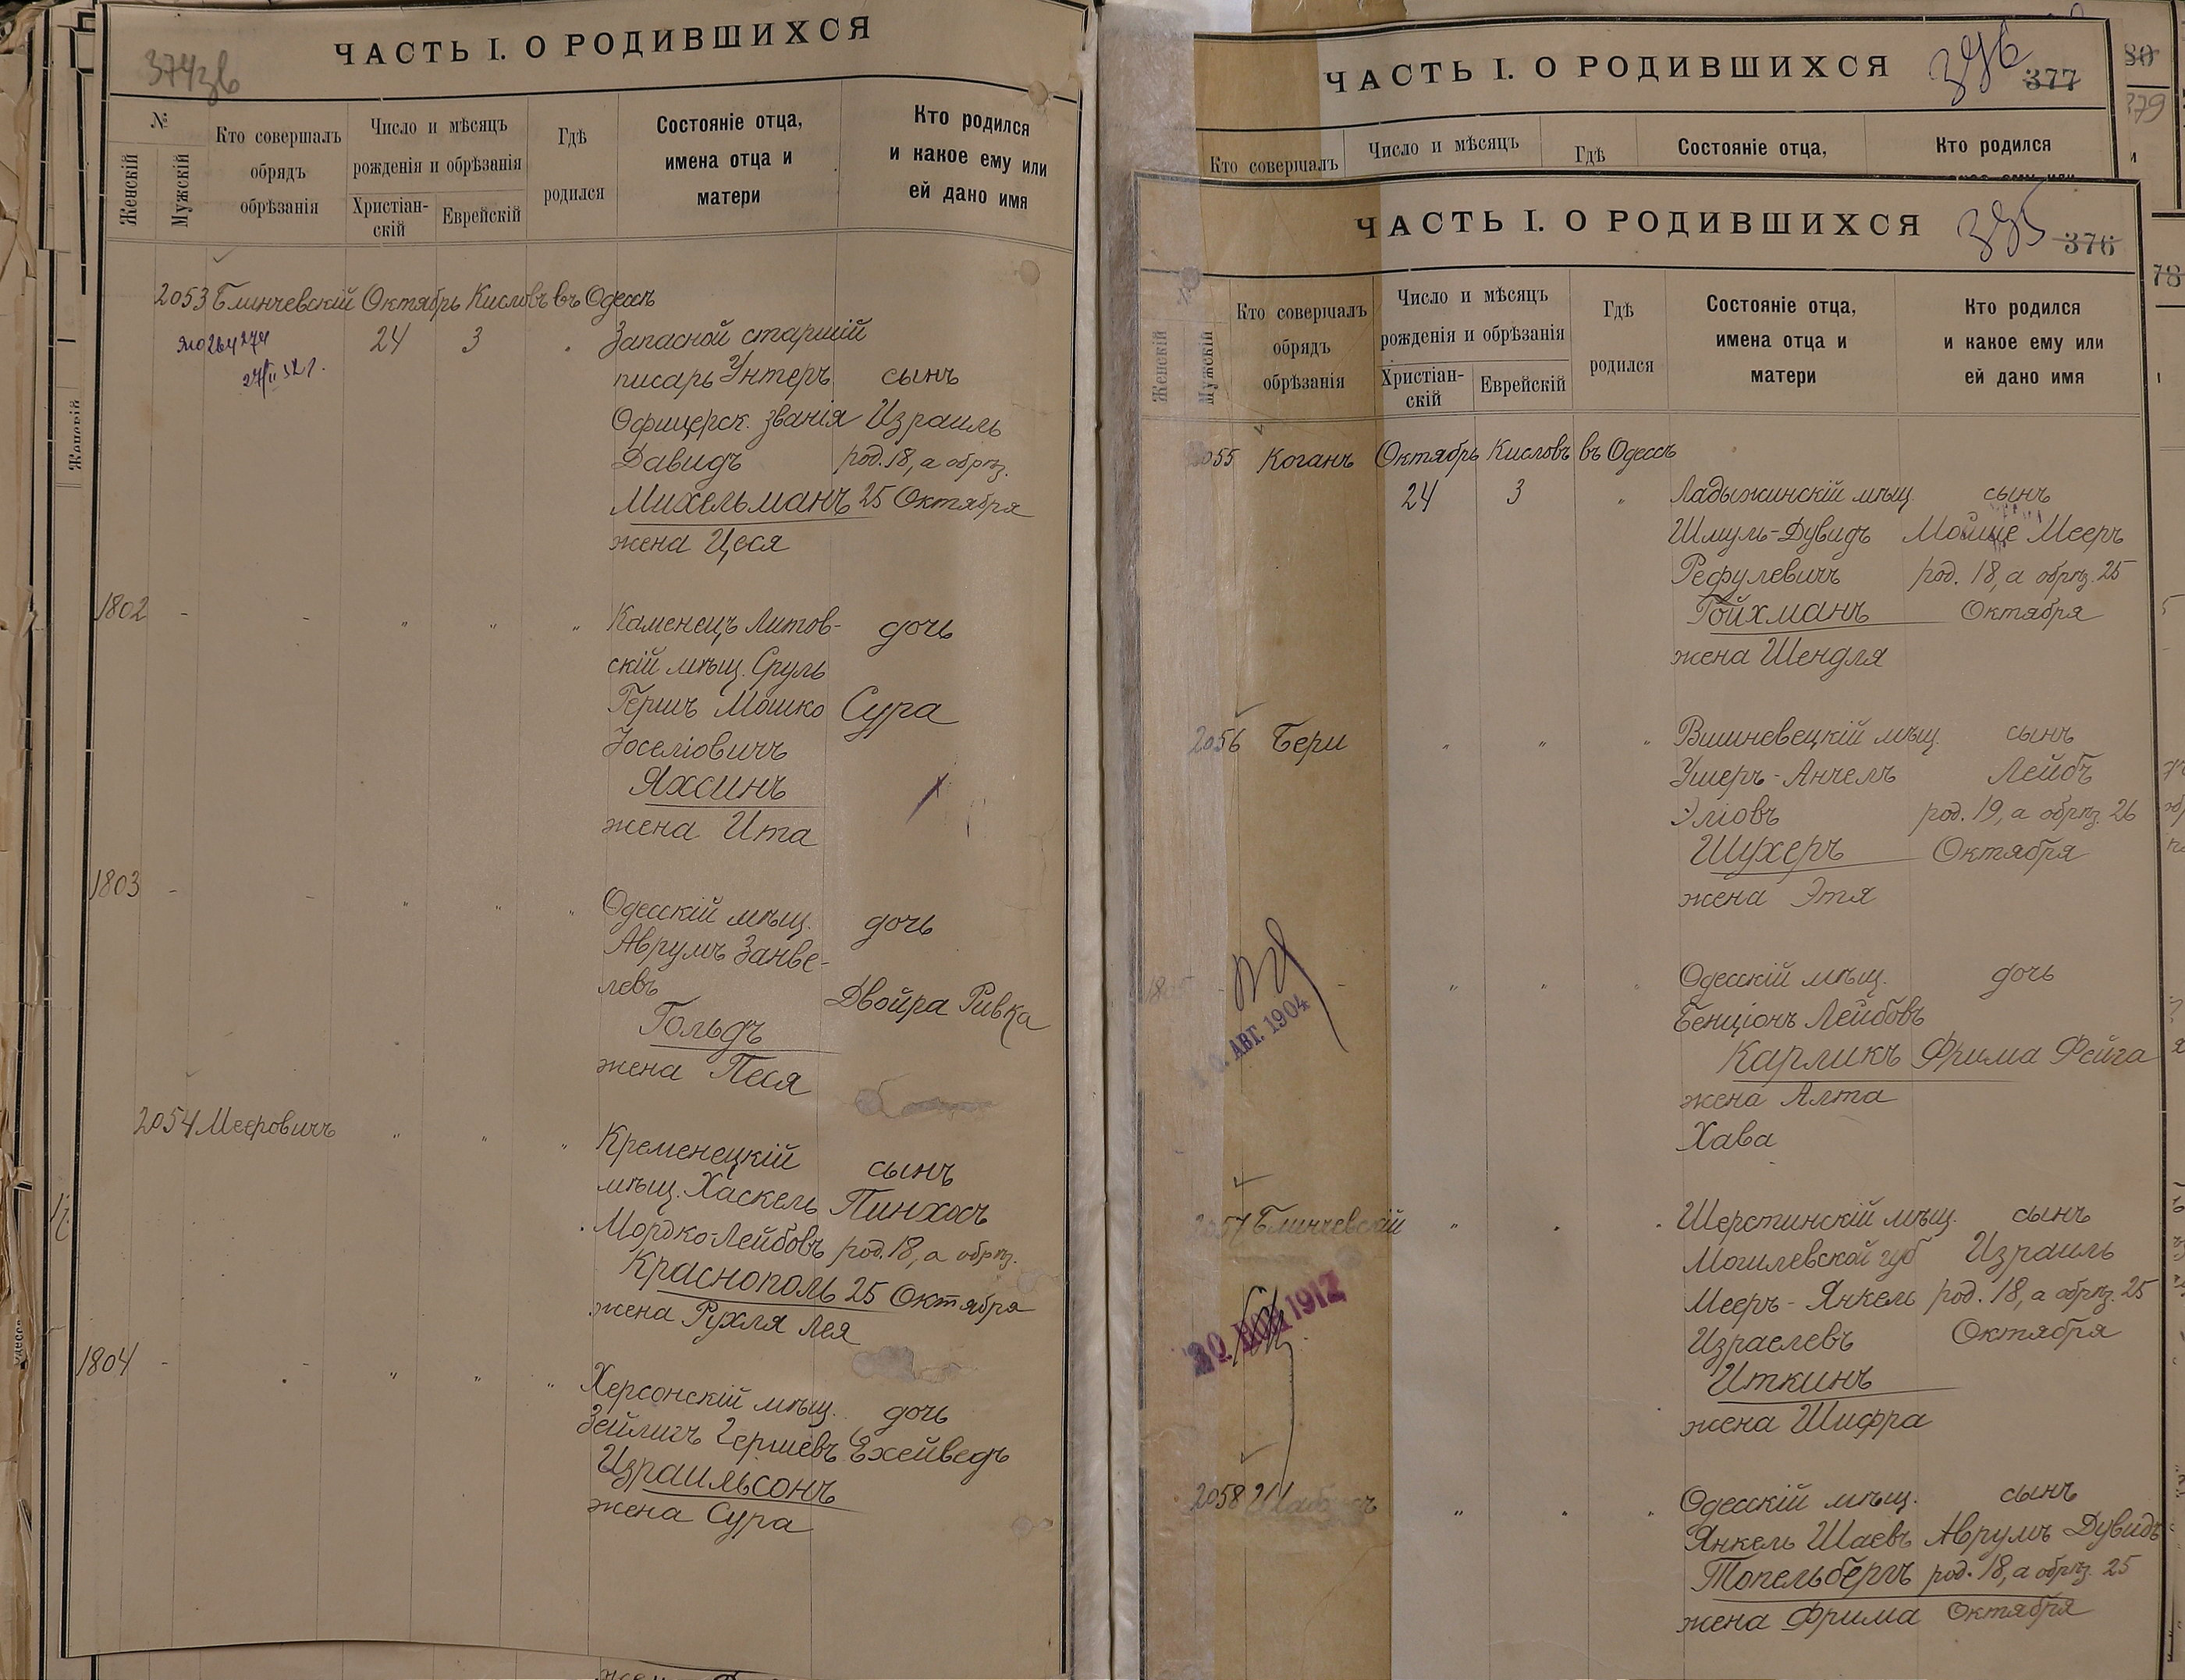 374зв
ЧАСТЬ I. О РОДИВШИХСЯ
№
Женскій
Мужскій
Кто совершалъ
обрядъ
обрѣзанія
Число и мѣсяцъ
рожденія и обрѣзанія
Христіан-
скій
Еврейскій
Гдѣ
родился
Состояніе отца,
имена отца и
матери
Кто родился
и какое ему или
ей дано имя
2053 Блинчевскій Октябрь Кисловъ въ Одессѣ
24 3 Запасной старшій
писарь Унтеръ сынъ
Офицерск. званія Израиль
Давидъ род. 18, а обрѣз.
Михельманъ 25 Октября
жена Цеся
1802 - - " " " Каменецъ Литов- дочь
скій мѣщ. Сруль
Гершъ Мошко Сура
Іоселіовичъ
Яхсинъ
жена Ита
1803 - - " " " Одесскій мѣщ. дочь
Аврумъ Занве-
левъ Двойра Ривка
Гольдъ
жена Песя
2054 Мееровичъ " " " Кременецкій сынъ
мѣщ. Хаскель Пинхосъ
Мордко-Лейбовъ род. 18, а обрѣз.
Краснополь 25 Октября
жена Рухля Лея
1804 - - " " " Херсонскій мѣщ. дочь
Зейлигъ Гершевъ Ехейведъ
Израильсонъ
жена Сура
ЧАСТЬ I. О РОДИВШИХСЯ
376
377
Кто совершалъ
Число и мѣсяцъ
Гдѣ
Состояніе отца,
Кто родился
ЧАСТЬ I. О РОДИВШИХСЯ
375
376
Женскій
Мужскій
Кто совершалъ
обрядъ
обрѣзанія
Число и мѣсяцъ
рожденія и обрѣзанія
Христіан-
скій
Еврейскій
Гдѣ
родился
Состояніе отца,
имена отца и
матери
Кто родился
и какое ему или
ей дано имя
2055 Коганъ Октябрь Кисловъ въ Одессѣ
24 3 " Ладыжинскій мѣщ. сынъ
Шмуль-Дувидъ Мойше Мееръ
Рефулевичъ род. 18, а обрѣз. 25
Гойхманъ Октября
жена Шендля
2056 Бери " " " Вишневецкій мѣщ. сынъ
Ушеръ-Анчелъ Лейбъ
Эліовъ род. 19, а обрѣз. 26
Шухеръ Октября
жена Этя
1805 - - " " " Одесскій мѣщ. дочь
Бенціонъ Лейбовъ
Карликъ Фрима Фейга
жена Алта
Хава
АВГ. 1904
2057 Блинчевскій " " " Шерстинскій мѣщ. сынъ
Могилевской губ Израиль
Мееръ-Янкель род. 18, а обрѣз. 25
Израелевъ Октября
Иткинъ
жена Шифра
1912
2058 " " " Одесскій мѣщ. сынъ
Янкель Шаевъ Аврумъ Дувидъ
Топельбергъ род. 18, а обрѣз. 25
жена Фрима Октября